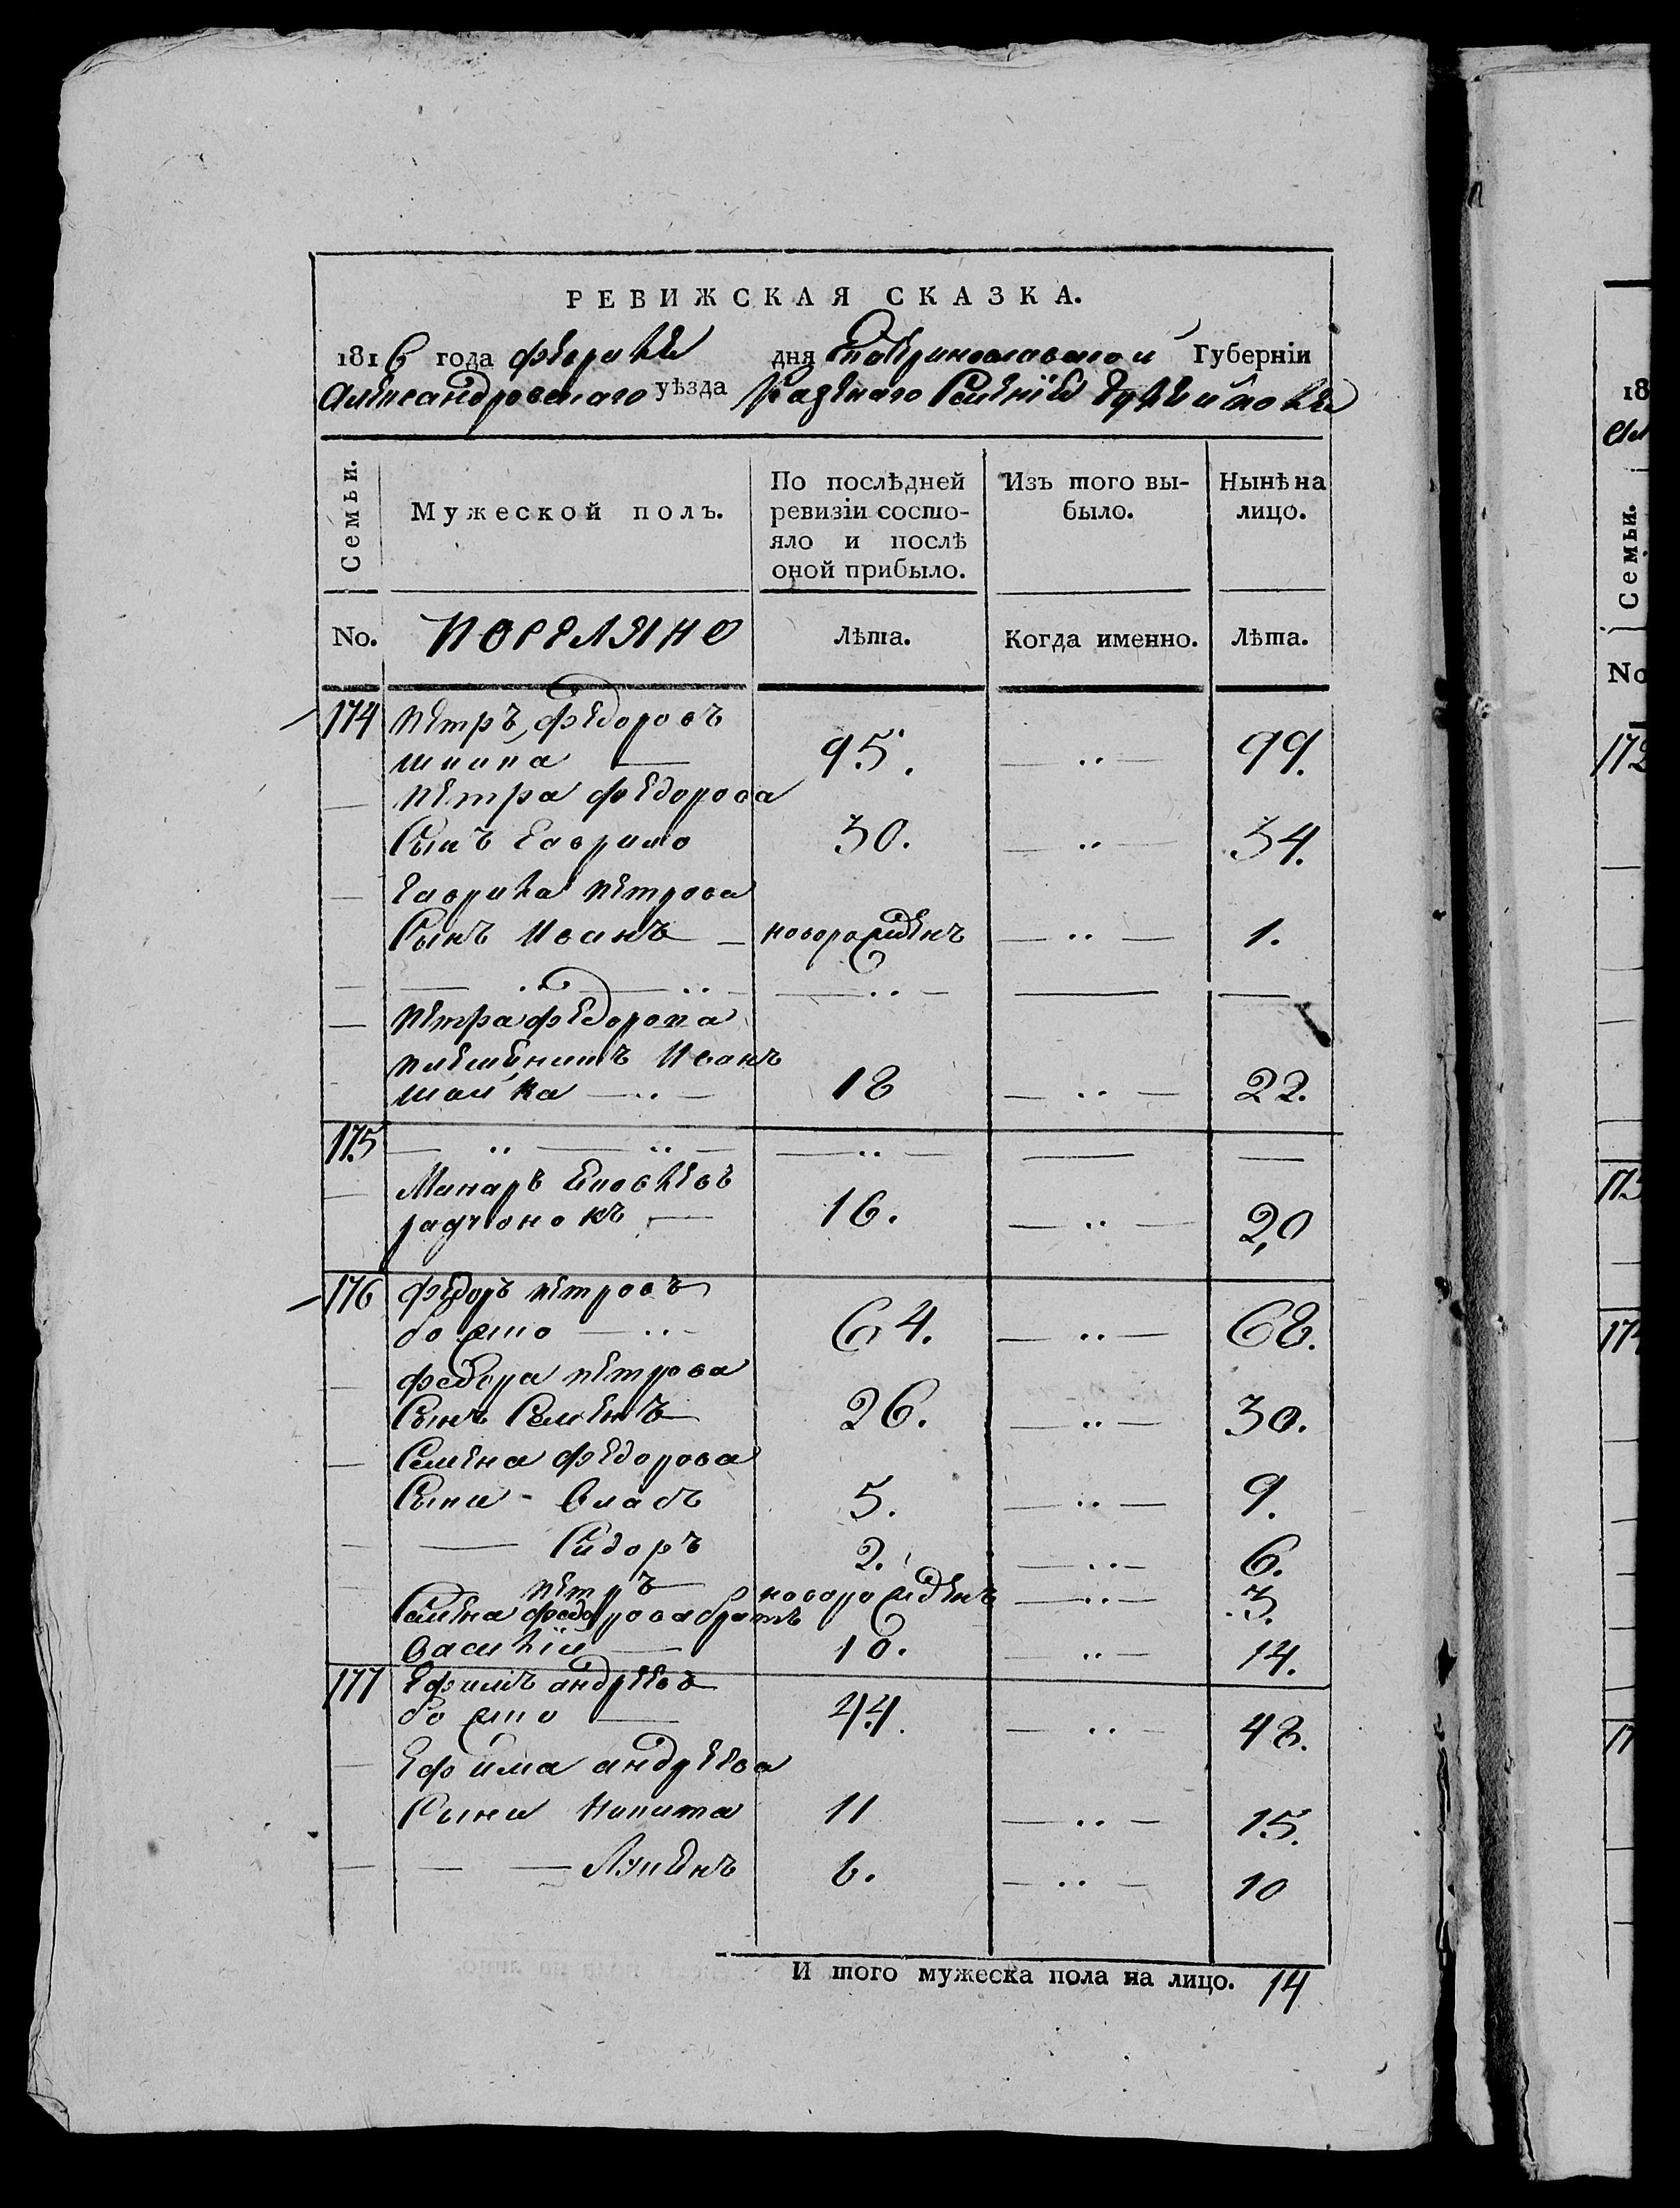 РЕВИЖСКАЯ СКАЗКА.
1816 года февраля дня Екатеринославской Губерніи
Александровскаго уѣзда Казенаго Селенія
Семьи.
Мужеской полъ.
По послѣдней ревизіи состо-
яло и послѣ
оной прибыло.
Изъ того вы-
было.
Нынѣ на
лицо.
No.
поселяно
Лѣта.
Когда именно.
Лѣта.
174 Петръ Федоровъ
95. — .. — 99.
— Петра Федорова
Сынъ Гаврило 30. — .. — 34.
— Гаврила Петрова
Сынъ Иванъ — новорожденъ — .. — 1.
— — .. — .. — — .. — — —
— Петра Федорова
племенникъ Иванъ
18 — .. — 22.
175 — .. — .. — — .. — — —
— Макаръ
16. — .. — 20
176 Федоръ Петровъ
божко — .. — 64. — .. — 68.
— Федора Петрова
Сынъ Семенъ 26. — .. — 30.
— Семена Федорова
Сыни - Власъ 5. — .. — 9.
— — Сидоръ 2. — .. — 6.
— Петръ новорожденъ — .. — 3.
Семена Федорова братъ
Василій — 10. — .. — 14.
177 Ефимъ андреевъ
божко — 44. — .. — 48.
— Ефима андреева
Сыни Никита 11 — .. — 15.
— — — Лукянъ 6. — .. — 10
И того мужеска пола на лицо. 14
18
Семьи.
No
172
173
174